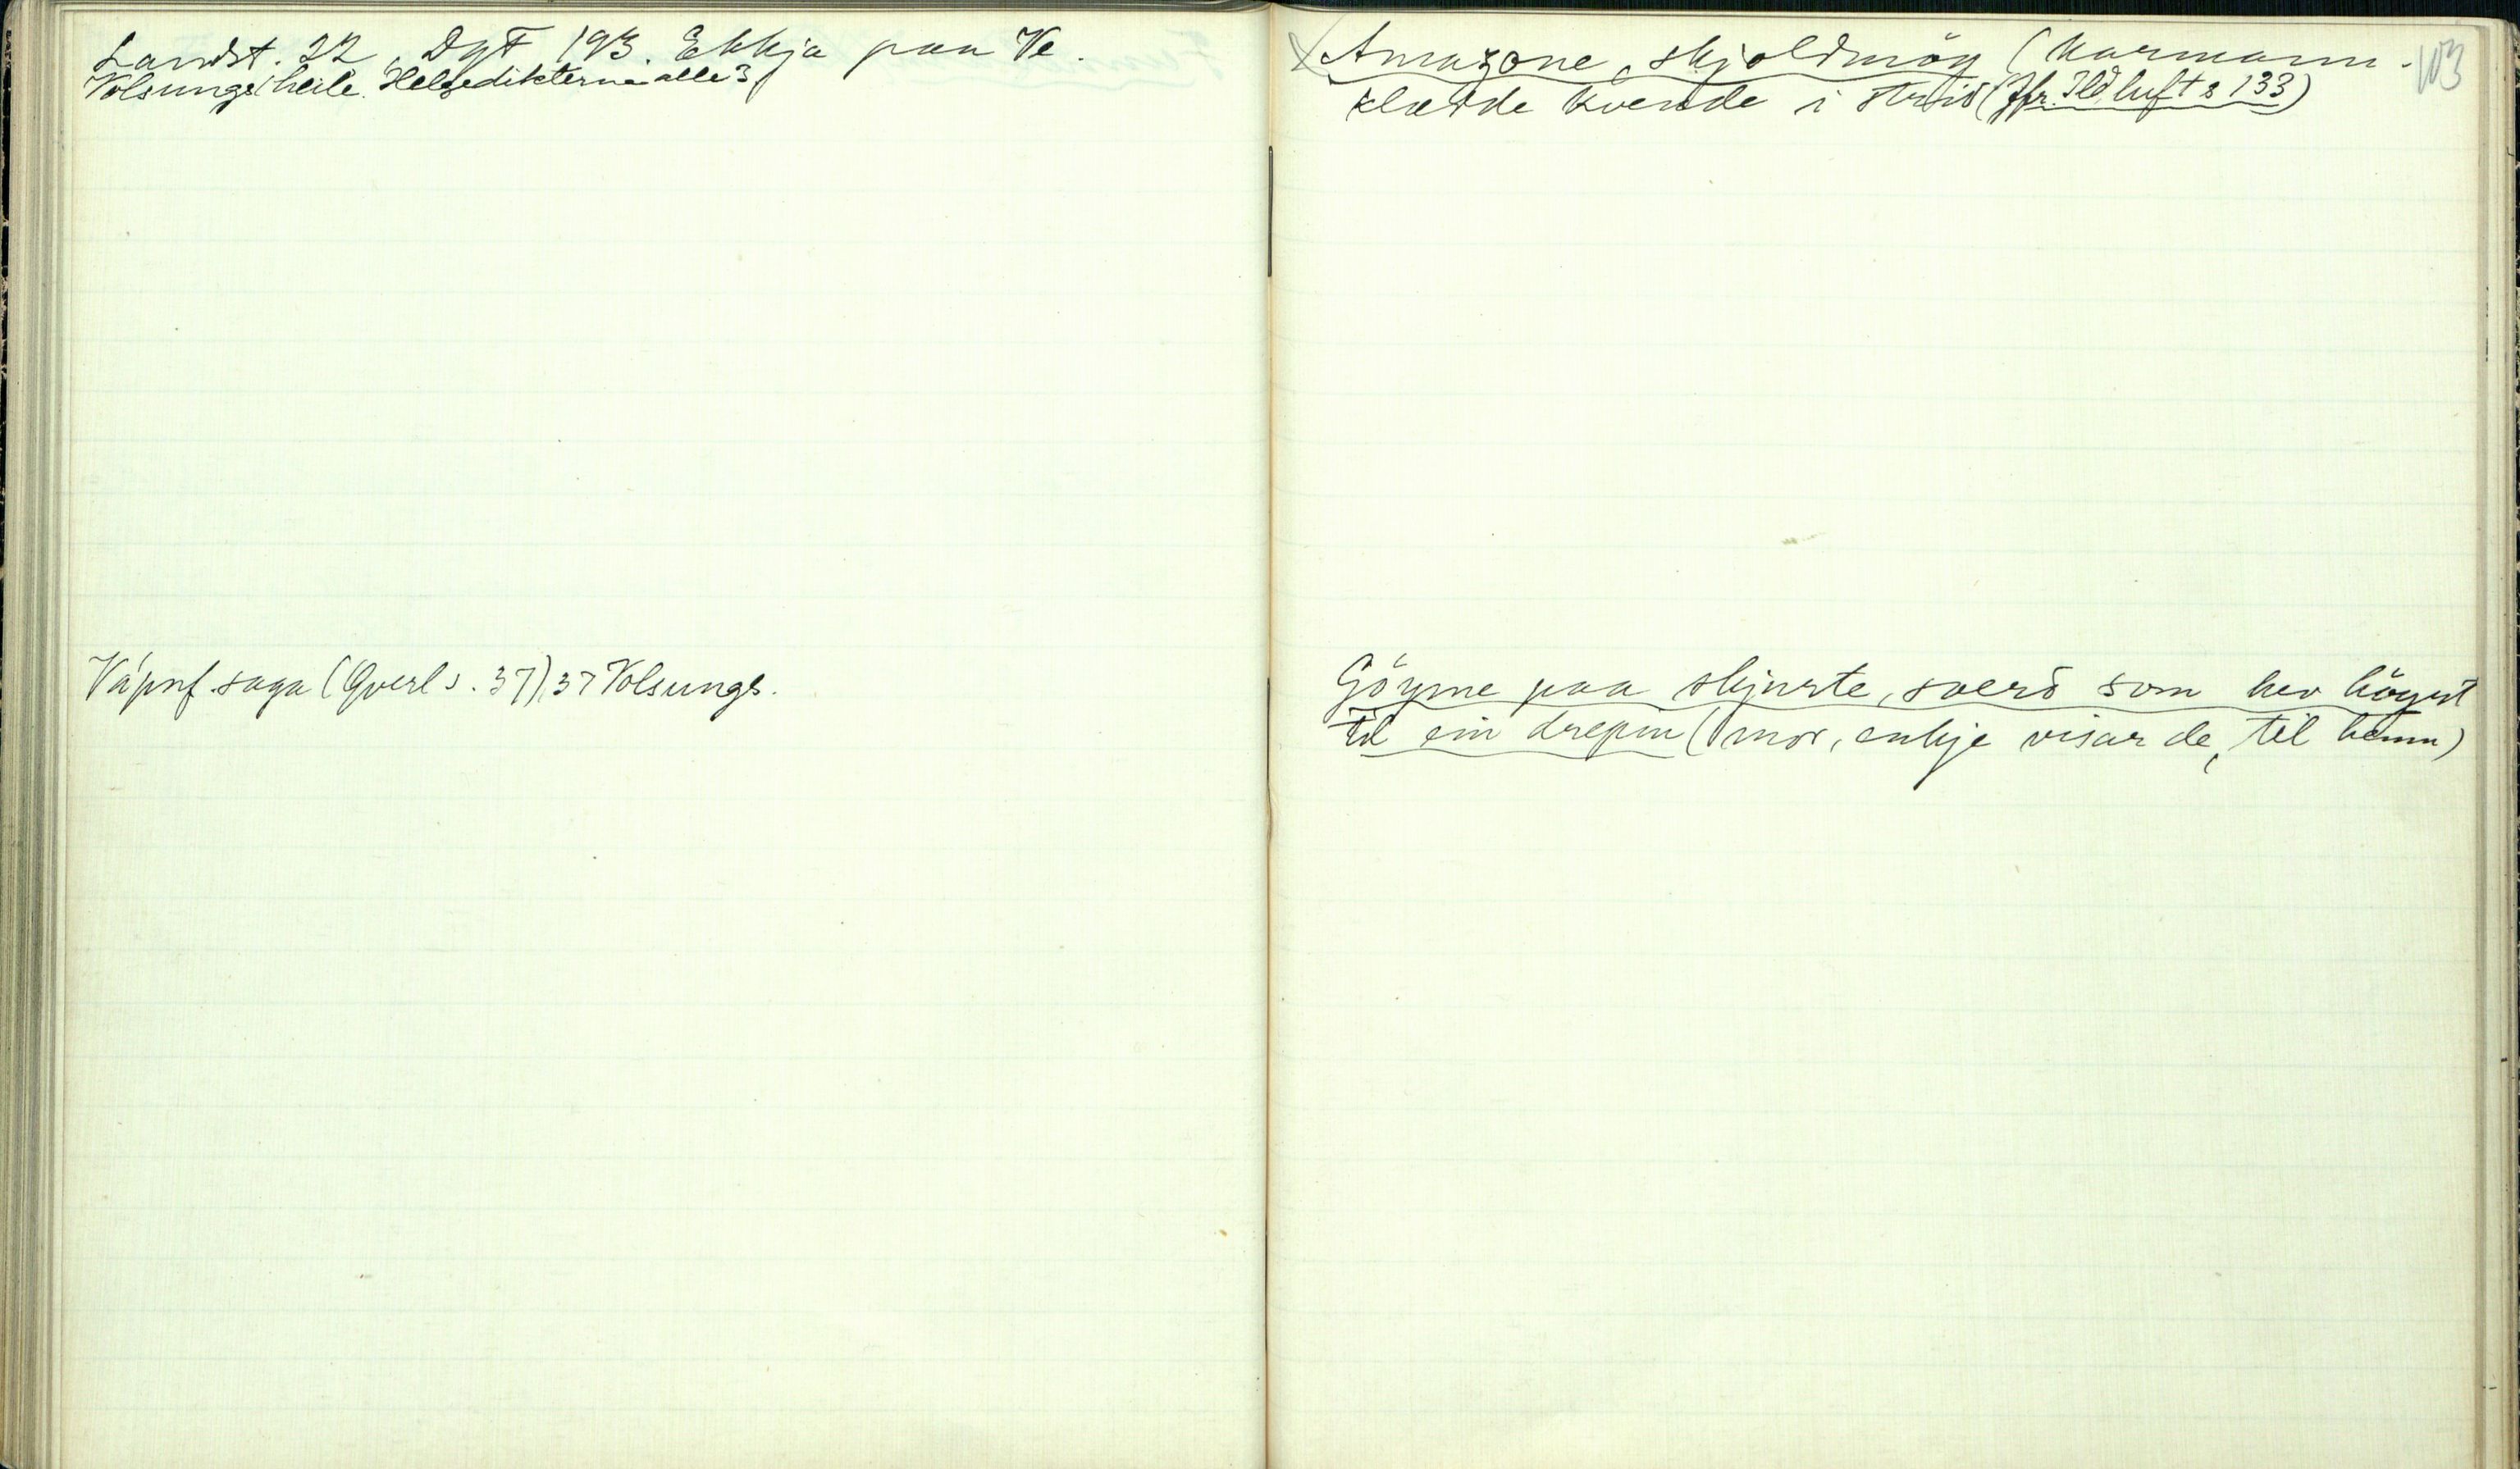 Landst. 22, DgF 193. Ekkja paa Ve.
Volsungs heile. Helgedikterna alle 3
Vápnf. saga (Qverl s. 37), 37 Volsungs.
103
Amazone, skjoldmöy (karmann-
klædde kvende i strid (Jfr. Ild luft s 133)
Göyme paa skjurte, sverd som hev höyrt
til ein drepin (mor, enkje visar de, til henn)